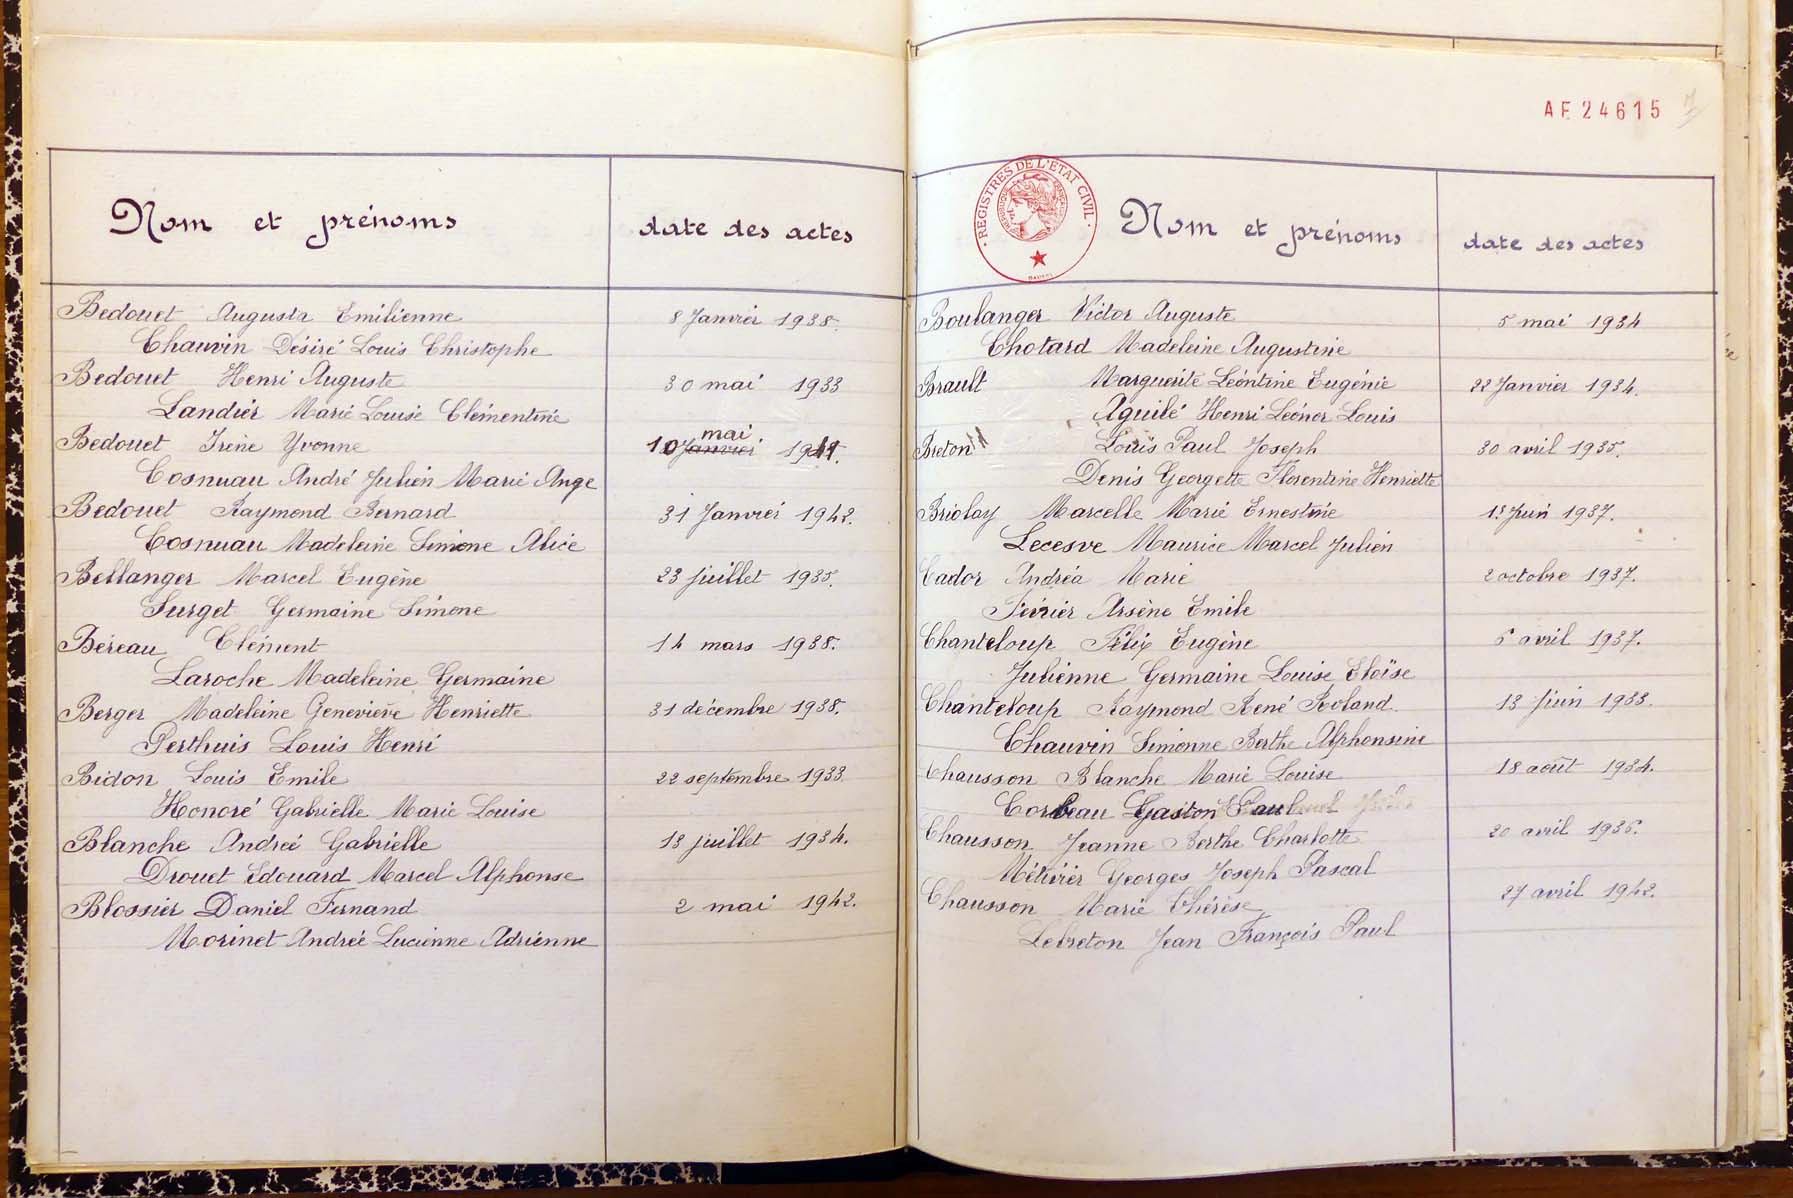 Nom et prénoms
date des actes
Bedouet Augusta Emilienne
8 Janvier 1938.
Chauvin Désiré Louis Christophe
Bedouet Henri Auguste
30 mai 1933
Landier Marie Louise Clémentine
Bedouet Irène Yvonne
mai
10 Janvier 1941.
Cosnuau André Julien Marie Ange
Bedouet Raymond Bernard
31 Janvier 1942.
Cosnuau Madeleine Simone Alice
Bellanger Marcel Eugène
23 juillet 1935.
Surget Germaine Simone
Béreau Clément
14 mars 1938.
Laroche Madeleine Germaine
Berger Madeleine Geneviève Henriette
31 décembre 1938.
Perthuis Louis Henri
Bidon Louis Emile
22 septembre 1933
Honoré Gabrielle Marie Louise
Blanche Andrée Gabrielle
18 juillet 1934.
Drouet Edouard Marcel Alphonse
Blossier Daniel Fernand
2 mai 1942.
Morinet Andrée Lucienne Adrienne
AE 24615
REGISTRES DE L'ETAT CIVIL
Nom et prénoms
date des actes
Boulanger Victor Auguste
5 mai 1934
Chotard Madeleine Augustine
Brault Marguerite Léontine Eugénie
22 Janvier 1934.
Aguilé Henri Léonor Louis
Breton Louis Paul Joseph
30 avril 1935.
Denis Georgette Florentine Henriette
Briolay Marcelle Marie Ernestine
Juin 1937.
Lecesve Maurice Marcel Julien
Cador Andréa Marie
2 octobre 1937.
Arsène Emile
Chanteloup Félix Eugène
5 avril 1937.
Julienne Germaine Louise Eloïse
Chanteloup Raymond René Roland
13 Juin 1933.
Chauvin Simonne Berthe Alphonsine
Chausson Blanche Marie Louise
18 août 1934.
Corbeau Gaston Paul
Chausson Jeanne Berthe Charlotte
20 avril 1936.
Métivier Georges Joseph Pascal
Chausson Marie Thérèse
27 avril 1942.
Lebreton Jean François Paul